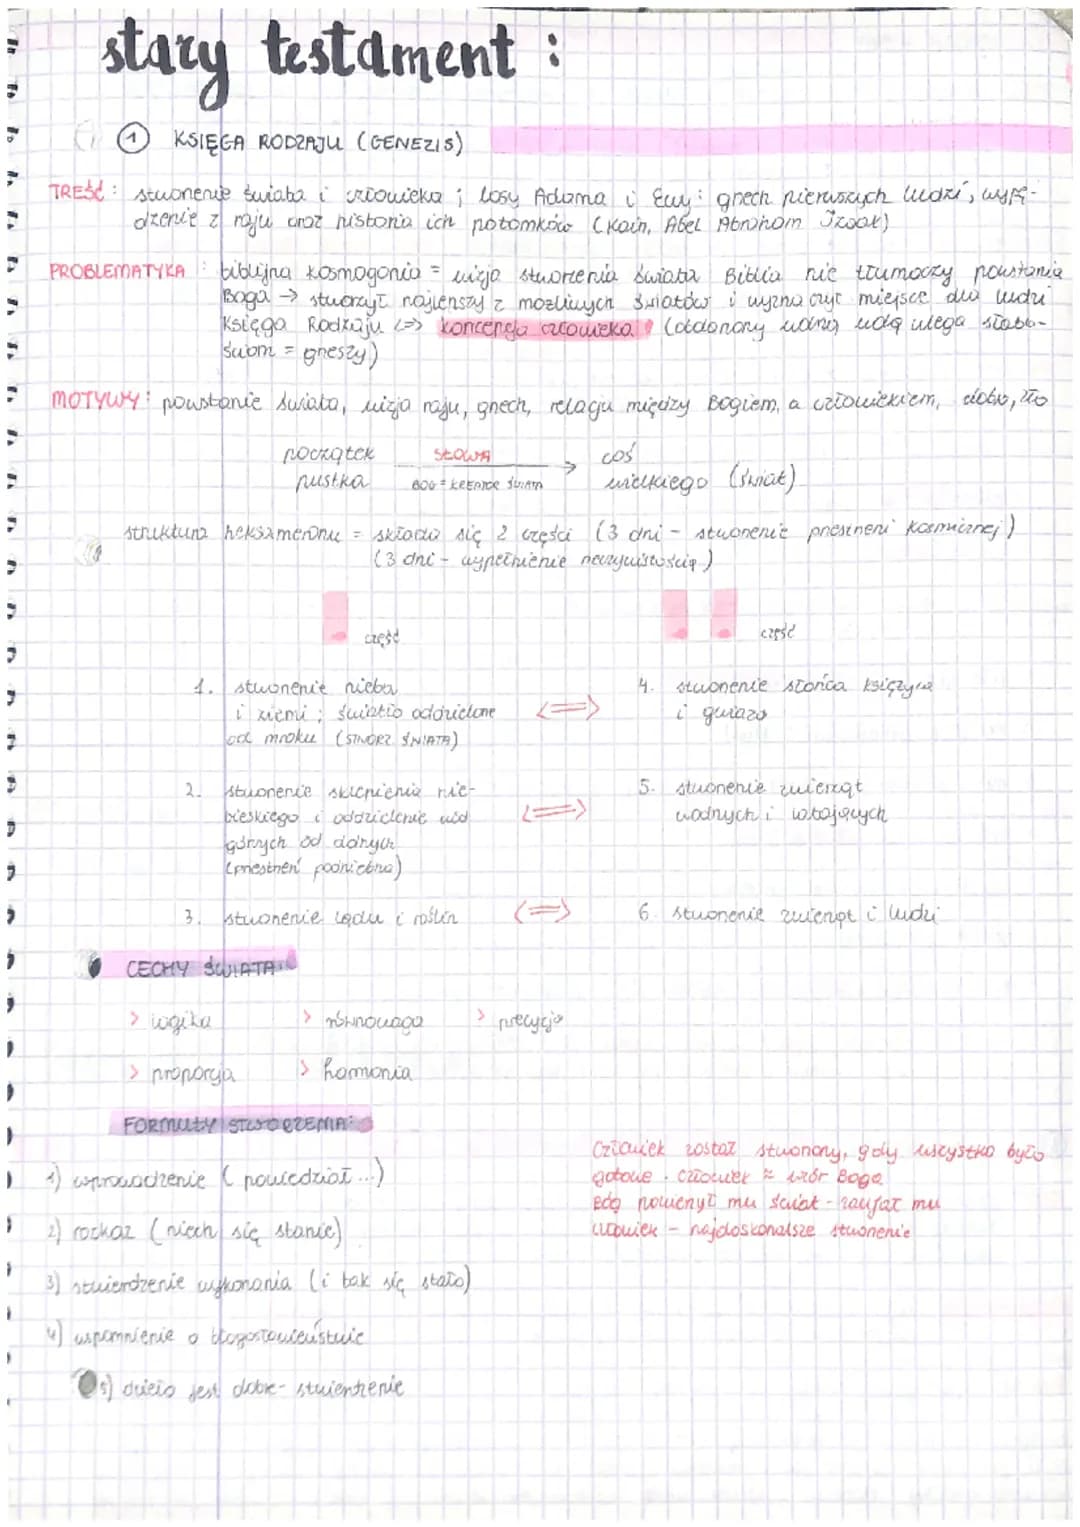 stary testament :
1 KSIĘGA RODZAJU (GENEZIS)
TREŚĆ : stworzenie świata i człowieka ; losy Adama i Ewy : grzech pierwszych ludzi, wypę-
dzenie z raju oraz historia ich potomków (Kain, Abel Abraham Izaak)
PROBLEMATYKA : biblijna kosmogonia = wizja stworzenia świata Biblia nie tłumaczy powstania
Boga → stworzył najlepszy z możliwych światów i wyznaczył miejsce dla ludzi
Księga Rodzaju <=> koncepcja człowieka (obdarzony wolną wolą ulega słabo-
ściom = grzeszy)
MOTYWY : powstanie świata, wizja raju, grzech, relacje między Bogiem, a człowiekiem, dobro, zło
początek SŁOWA coś
pustka BÓG = KREATOR ŚWIATA → wielkiego (świat)
struktura heksameronu = składa się 2 części (3 dni - stworzenie przestrzeni kosmicznej)
(3 dni - wypełnienie rzeczywistością)
I część II część
1. stworzenie nieba
i ziemi ; światło oddzielone
od mroku (STWORZ. ŚWIATA)
<=>
4. stworzenie słońca księżyca
i gwiazd
2. stworzenie sklepienia nie-
bieskiego i oddzielenie wód
górnych od dolnych
(przestrzeń podniebna)
<=>
5. stworzenie zwierząt
wodnych i latających
3. stworzenie lądu i roślin
<=>
6. stworzenie zwierząt i ludzi
CECHY ŚWIATA:
> logika > równowaga > precyzja
> proporcja > harmonia
FORMUŁY STWORZENIA:
1) wprowadzenie (powiedział...)
2) rozkaz (niech się stanie)
3) stwierdzenie wykonania (i tak się stało)
4) wspomnienie o błogosławieństwie
5) dzieło jest dobre - stwierdzenie
Człowiek został stworzony, gdy wszystko było
gotowe. człowiek = wzór Boga
Bóg powierzył mu świat - zaufał mu
człowiek - najdoskonalsze stworzenie